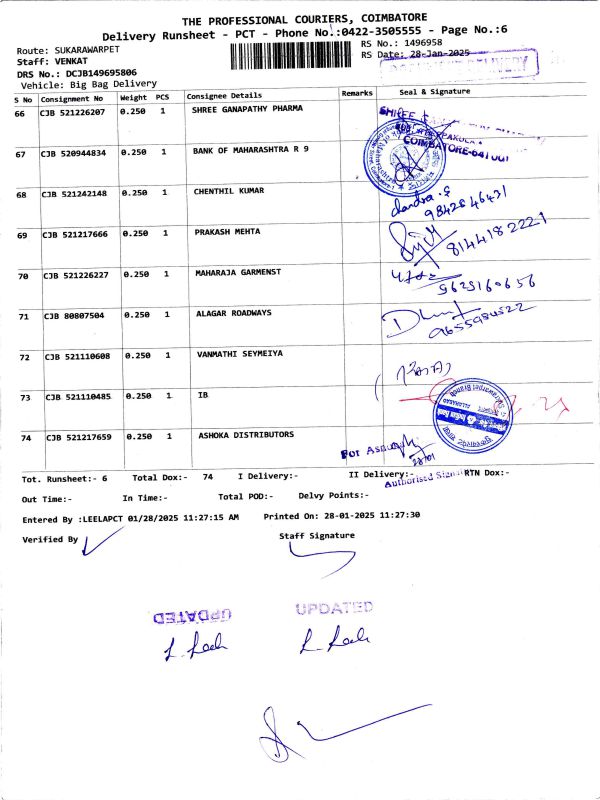 THE PROFESSIONAL COURIERS, COIMBATORE
Delivery Runsheet - PCT - Phone No.:0422-3505555 - Page No.:6
Route: SUKARAWARPET
RS No.: 1496958
Staff: VENKAT
RS Date: 28-Jan-2025
DRS No.: DCJB149695806
Vehicle: Big Bag Delivery
S No Consignment No Weight PCS Consignee Details Remarks Seal & Signature
66 CJB 521226207 0.250 1 SHREE GANAPATHY PHARMA
SHREE
COIMBATORE-641 001
67 CJB 520944834 0.250 1 BANK OF MAHARASHTRA R 9
68 CJB 521242148 0.250 1 CHENTHIL KUMAR
9842846431
69 CJB 521217666 0.250 1 PRAKASH MEHTA
8144182221
70 CJB 521226227 0.250 1 MAHARAJA GARMENST
9629160656
71 CJB 80807504 0.250 1 ALAGAR ROADWAYS
9655984522
72 CJB 521110608 0.250 1 VANMATHI SEYMEIYA
73 CJB 521110485 0.250 1 IB
74 CJB 521217659 0.250 1 ASHOKA DISTRIBUTORS
For
28/01
Tot. Runsheet:- 6 Total Dox:- 74 I Delivery:- II Delivery:- RTN Dox:-
Authorised
Out Time:- In Time:- Total POD:- Delvy Points:-
Entered By :LEELAPCT 01/28/2025 11:27:15 AM Printed On: 28-01-2025 11:27:30
Verified By Staff Signature
UPDATED UPDATED